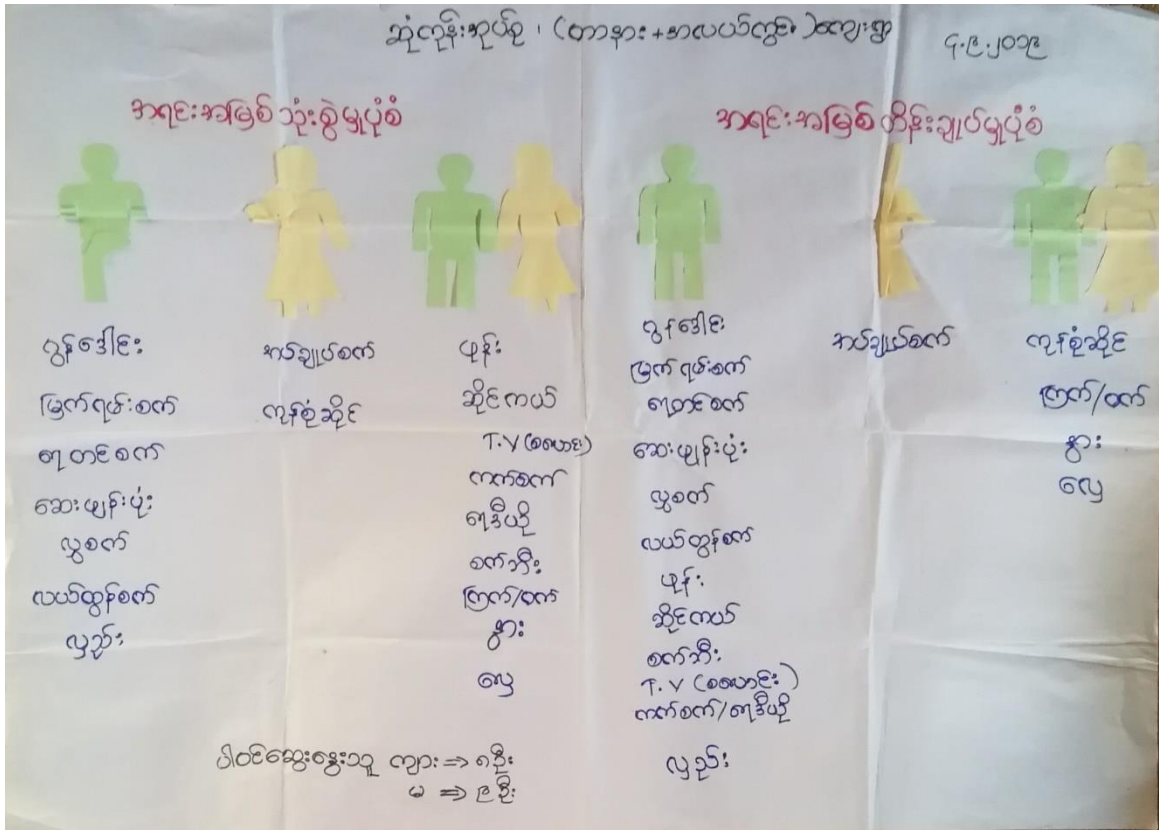 ဆုံကုန်းအုပ်စု ၊ (တာနား+အလယ်ကွင်း)ကျေးရွာ
၄.၉.၂၀၁၉
အရင်းအမြစ်သုံးစွဲမှုပုံစံ
ဂွန်ဒေါင်း
မြက်ရမ်းစက်
ရေတင်စက်
ဆေးဖျန်းပုံး
လွှစက်
လယ်ထွန်စက်
လှည်း
အပ်ချုပ်စက်
ကုန်စုံဆိုင်
ဖုန်း
ဆိုင်ကယ်
T.V (စလောင်း)
ကက်စက်
ရေဒီယို
စက်ဘီး
ကြက်/ဝက်
နွား
လှေ
အရင်းအမြစ်ထိန်းချုပ်မှုပုံစံ
ဂွန်ဒေါင်း
မြက်ရမ်းစက်
ရေတင်စက်
ဆေးဖျန်းပုံး
လွှစက်
လယ်ထွန်စက်
ဖုန်း
ဆိုင်ကယ်
စက်ဘီး
T.V (စလောင်း)
ကက်စက်/ရေဒီယို
လှည်း
အပ်ချုပ်စက်
ကုန်စုံဆိုင်
ကြက်/ဝက်
နွား
လှေ
ပါဝင်ဆွေးနွေးသူ ကျား ⇒ ၈ဦး
မ ⇒ ၉ဦး